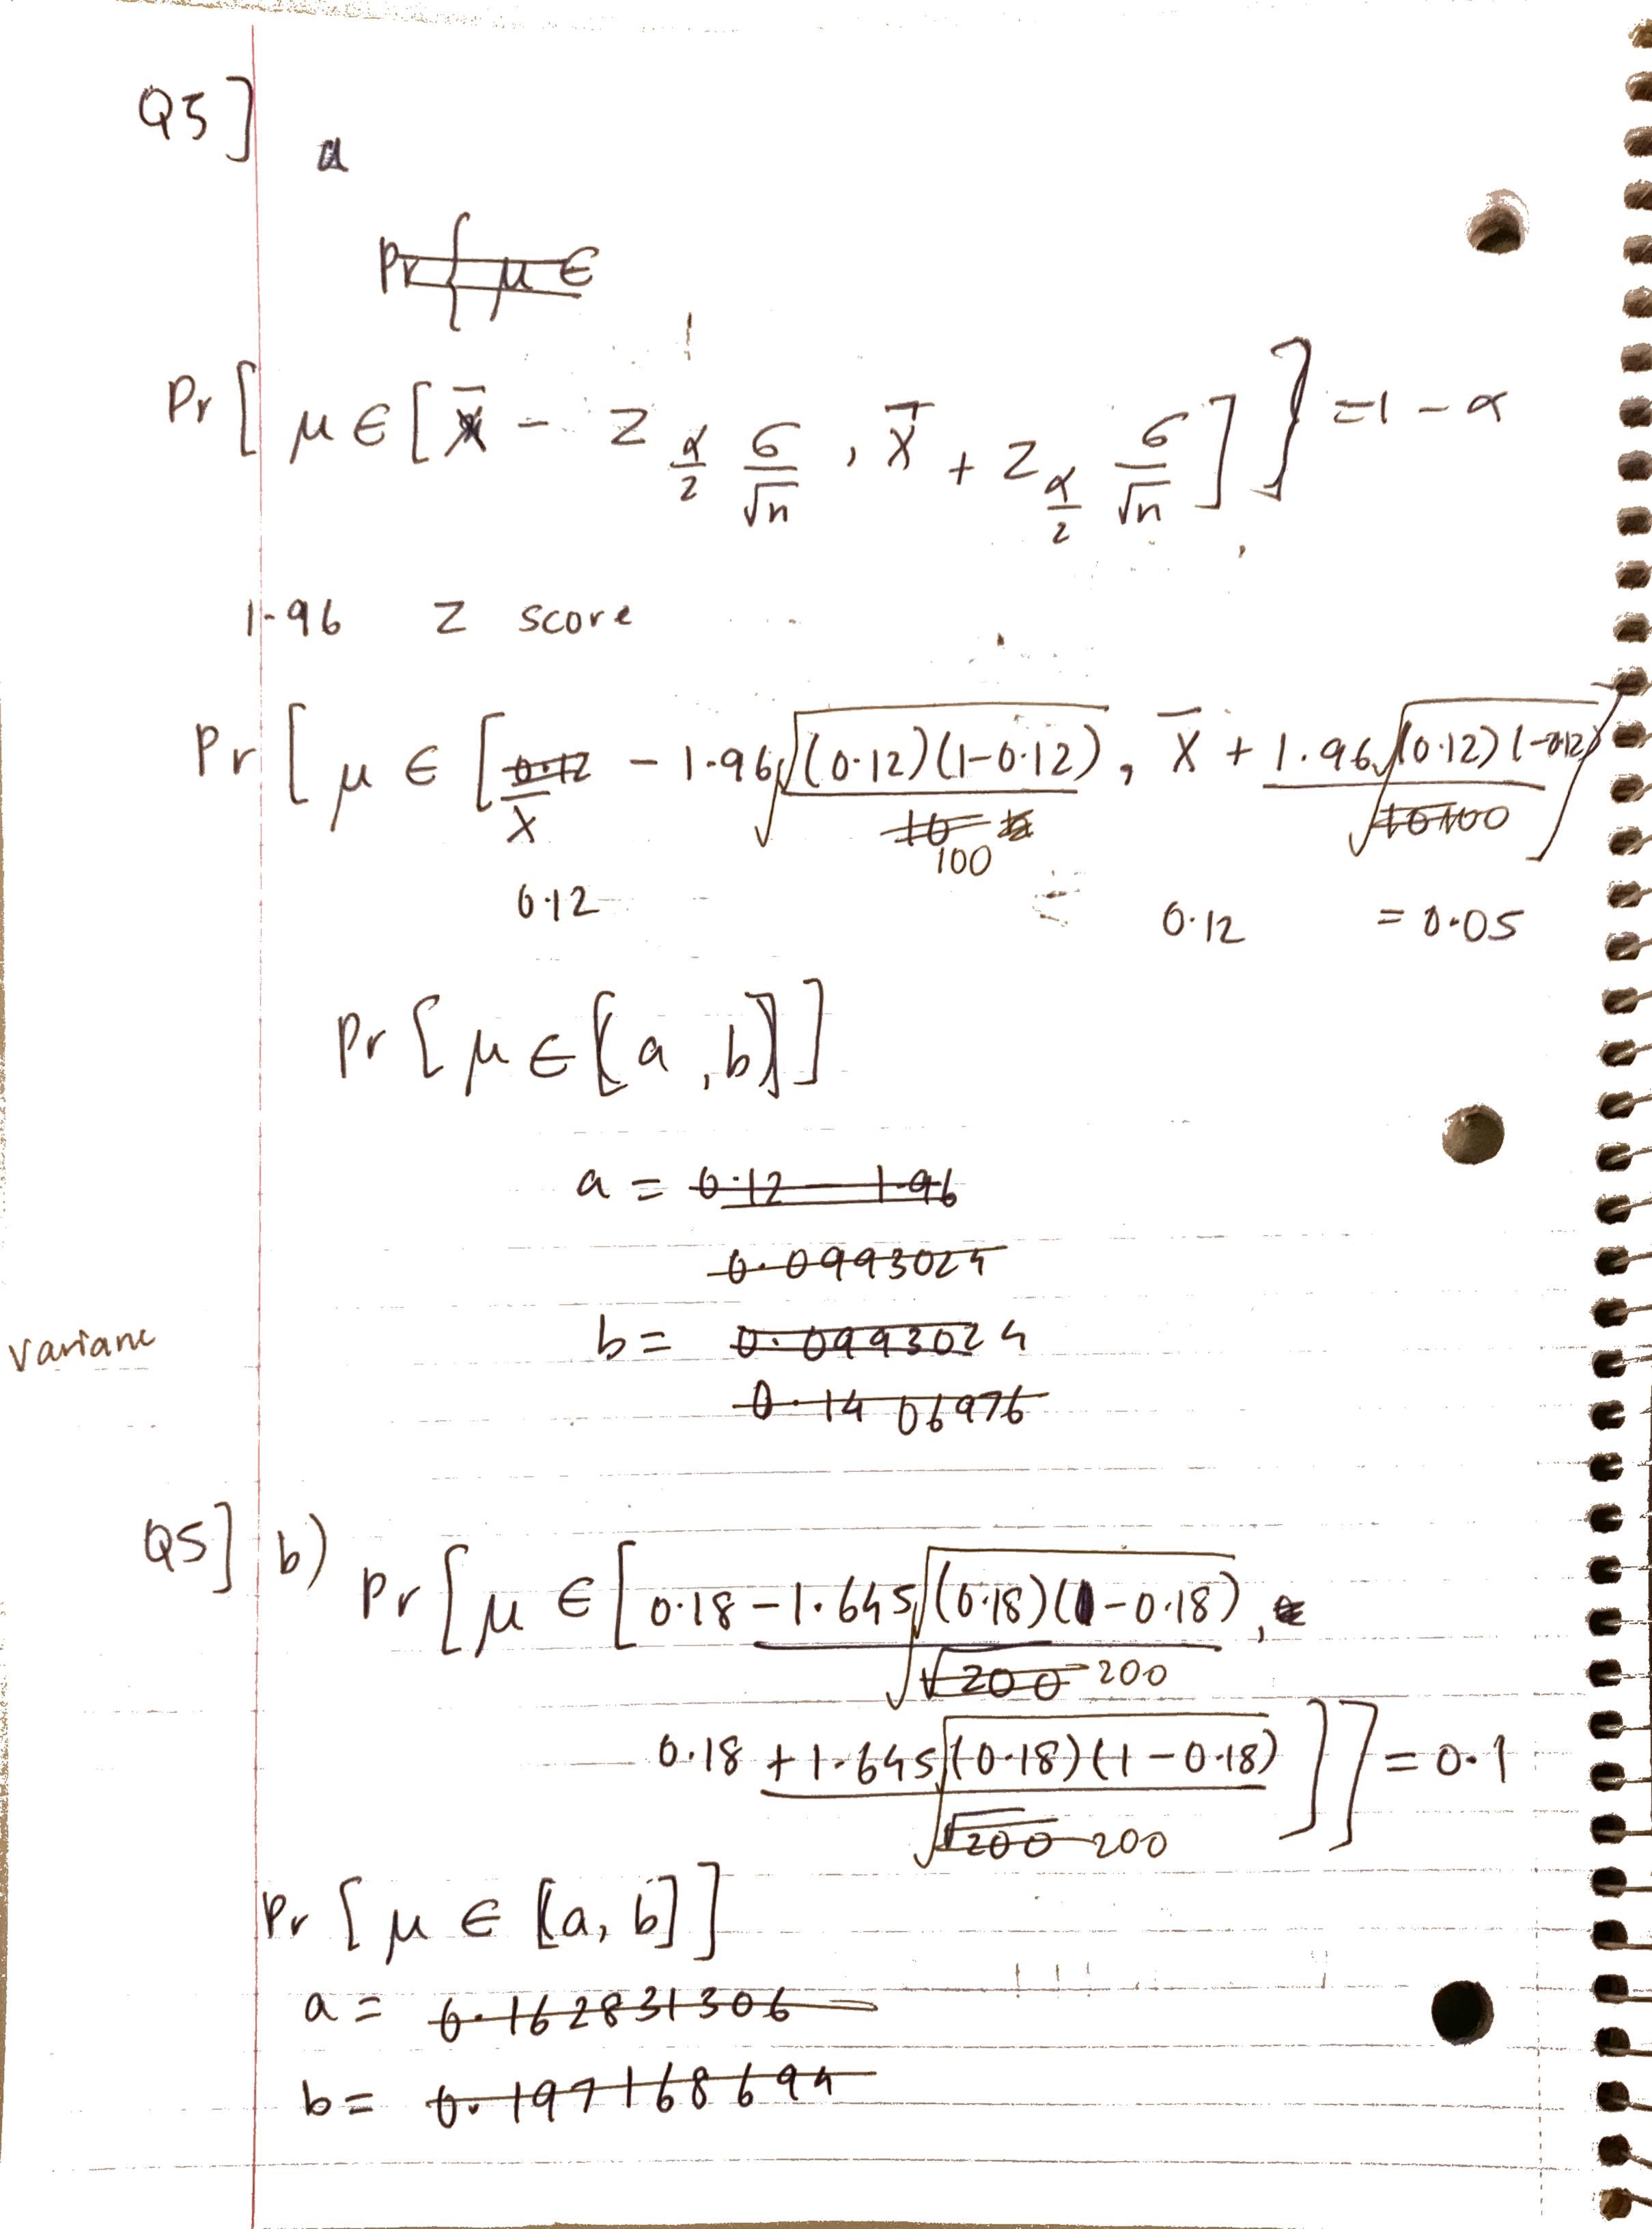 Q5]
a
Pr{ μ ∈
Pr[ μ ∈ [ X̄ - Z α/2 σ/√n , X̄ + Z α/2 σ/√n ] } = 1 - α
1.96 Z score
Pr[ μ ∈ [ 0.12 X̄ - 1.96 √(0.12)(1-0.12) , X̄ + 1.96 √(0.12)(-0.12) ]
10 100 10100
0.12 0.12 = 0.05
Pr[ μ ∈ [a, b] ]
a = 0.12 - 1.96
0.0993024
Varianc
b = 0.0993024
0.1406976
Q5] b) Pr[ μ ∈ [ 0.18 - 1.645 √(0.18)(1-0.18) ,
√200 200
0.18 + 1.645 √(0.18)(1-0.18) ] ] = 0.1
√200 200
Pr[ μ ∈ [a, b] ]
a = 0.162831306
b = 0.197168694